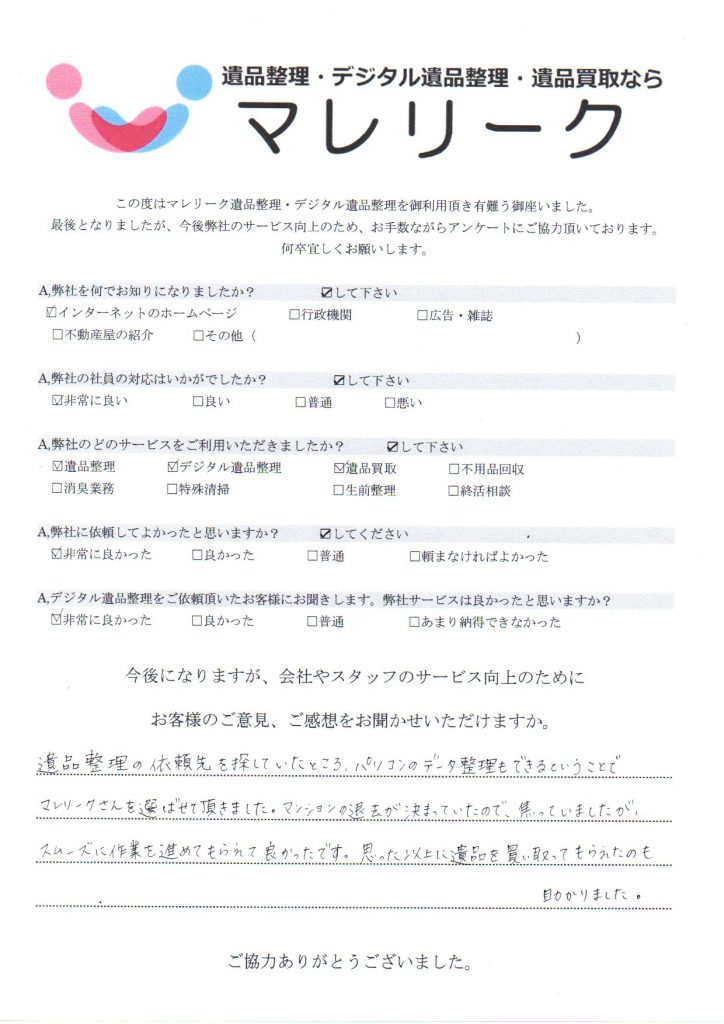 遺品整理・デジタル遺品整理・遺品買取なら
マレリーク
この度はマレリーク遺品整理・デジタル遺品整理を御利用頂き有難う御座いました。
最後となりましたが、今後弊社のサービス向上のため、お手数ながらアンケートにご協力頂いております。
何卒宜しくお願いします。
A,弊社を何でお知りになりましたか? ☑して下さい
☑インターネットのホームページ □行政機関 □広告・雑誌
□不動産屋の紹介 □その他( )
A,弊社の社員の対応はいかがでしたか? ☑して下さい
☑非常に良い □良い □普通 □悪い
A,弊社のどのサービスをご利用いただきましたか? ☑して下さい
☑遺品整理 ☑デジタル遺品整理 ☑遺品買取 □不用品回収
□消臭業務 □特殊清掃 □生前整理 □終活相談
A,弊社に依頼してよかったと思いますか? ☑してください
☑非常に良かった □良かった □普通 □頼まなければよかった
A,デジタル遺品整理をご依頼頂いたお客様にお聞きします。弊社サービスは良かったと思いますか?
☑非常に良かった □良かった □普通 □あまり納得できなかった
今後になりますが、会社やスタッフのサービス向上のために
お客様のご意見、ご感想をお聞かせいただけますか。
遺品整理の依頼先を探していたところ、パソコンのデータ整理もできるということで
マレリークさんを選ばせて頂きました。マンションの退去が決まっていたので、焦っていましたが、
スムーズに作業を進めてもらえて良かったです。思った以上に遺品を買い取ってもらえたのも
助かりました。
ご協力ありがとうございました。